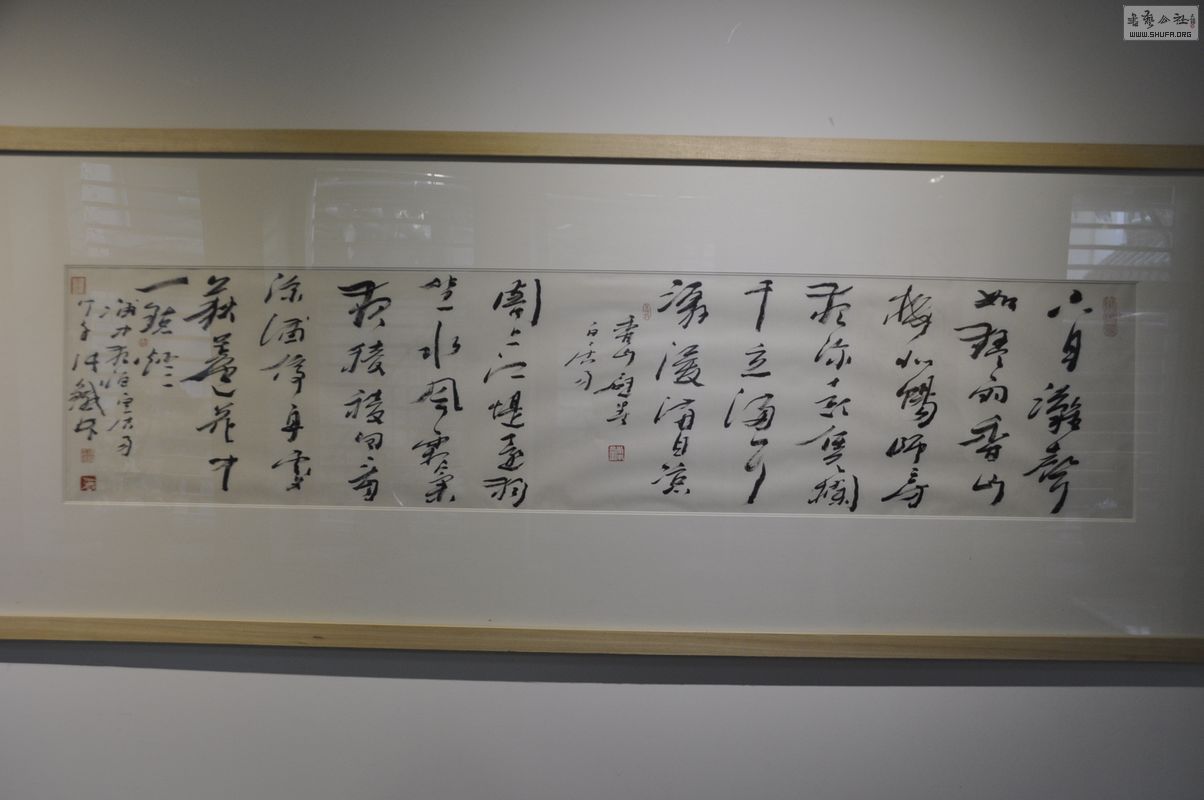 六月灘聲
如猛雨香山
樓北暢師房
夜深起凭闌
干立滿耳
潺湲滿面涼
香山避暑
白居易
闇上江堤還獨
立水風霜氣
夜稜稜回看
深浦停舟處
荻蘆花中
一點燈
浦中夜泊白居易
書藝公社
WWW.SHUFA.ORG